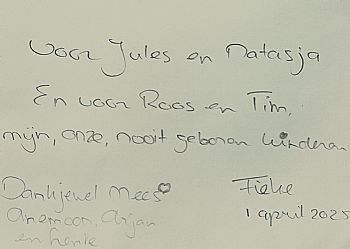 Voor Jules en Natasja
En voor Roos en Tim,
mijn, onze, nooit geboren kinderen
Dankjewel Mees
Anemoon, Arjan
en Henk
Fieke
1 april 2025